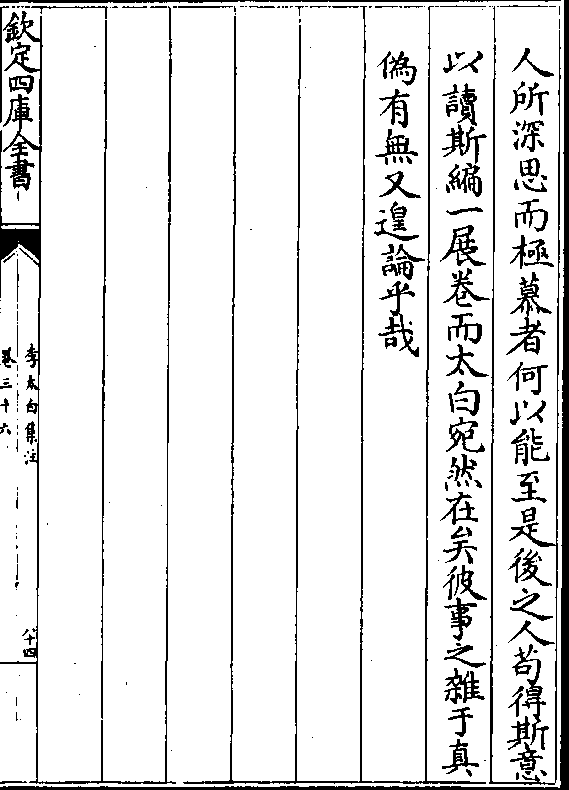 人所深思而極慕者何以能至是後之人茍得斯意
以讀斯編一展卷而太白宛然在矣彼事之雜于真
偽有無又遑論乎哉
欽定四庫全書
李太白集注
卷三十六
八十四